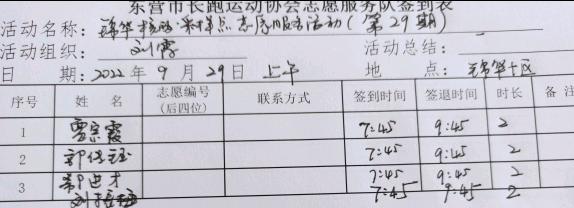 东营市长跑运动协会志愿服务队签到表
活动名称：锦华核酸采样点志愿服务活动（第29期）
活动组织：刘霞 活动总结：
日 期：2022年9月29日上午 地 点：锦华十区
序号 姓 名 志愿编号（后四位） 联系方式 签到时间 签退时间 时长 备注
1 霞 7:45 9:45 2
2 郭 7:45 9:45 2
3 7:45 9:45 2
刘 7:45 9:45 2